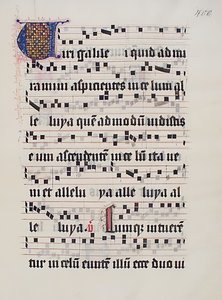 Viri galilei quid admi
ramini aspicientes in celum al
le luya quemadmodū uidistis
eum ascendentē in celū ita ue
niet allelu ya alle luya al
le luya. Cumq; intuerē
tur in celū euntē illū ecce duo ui